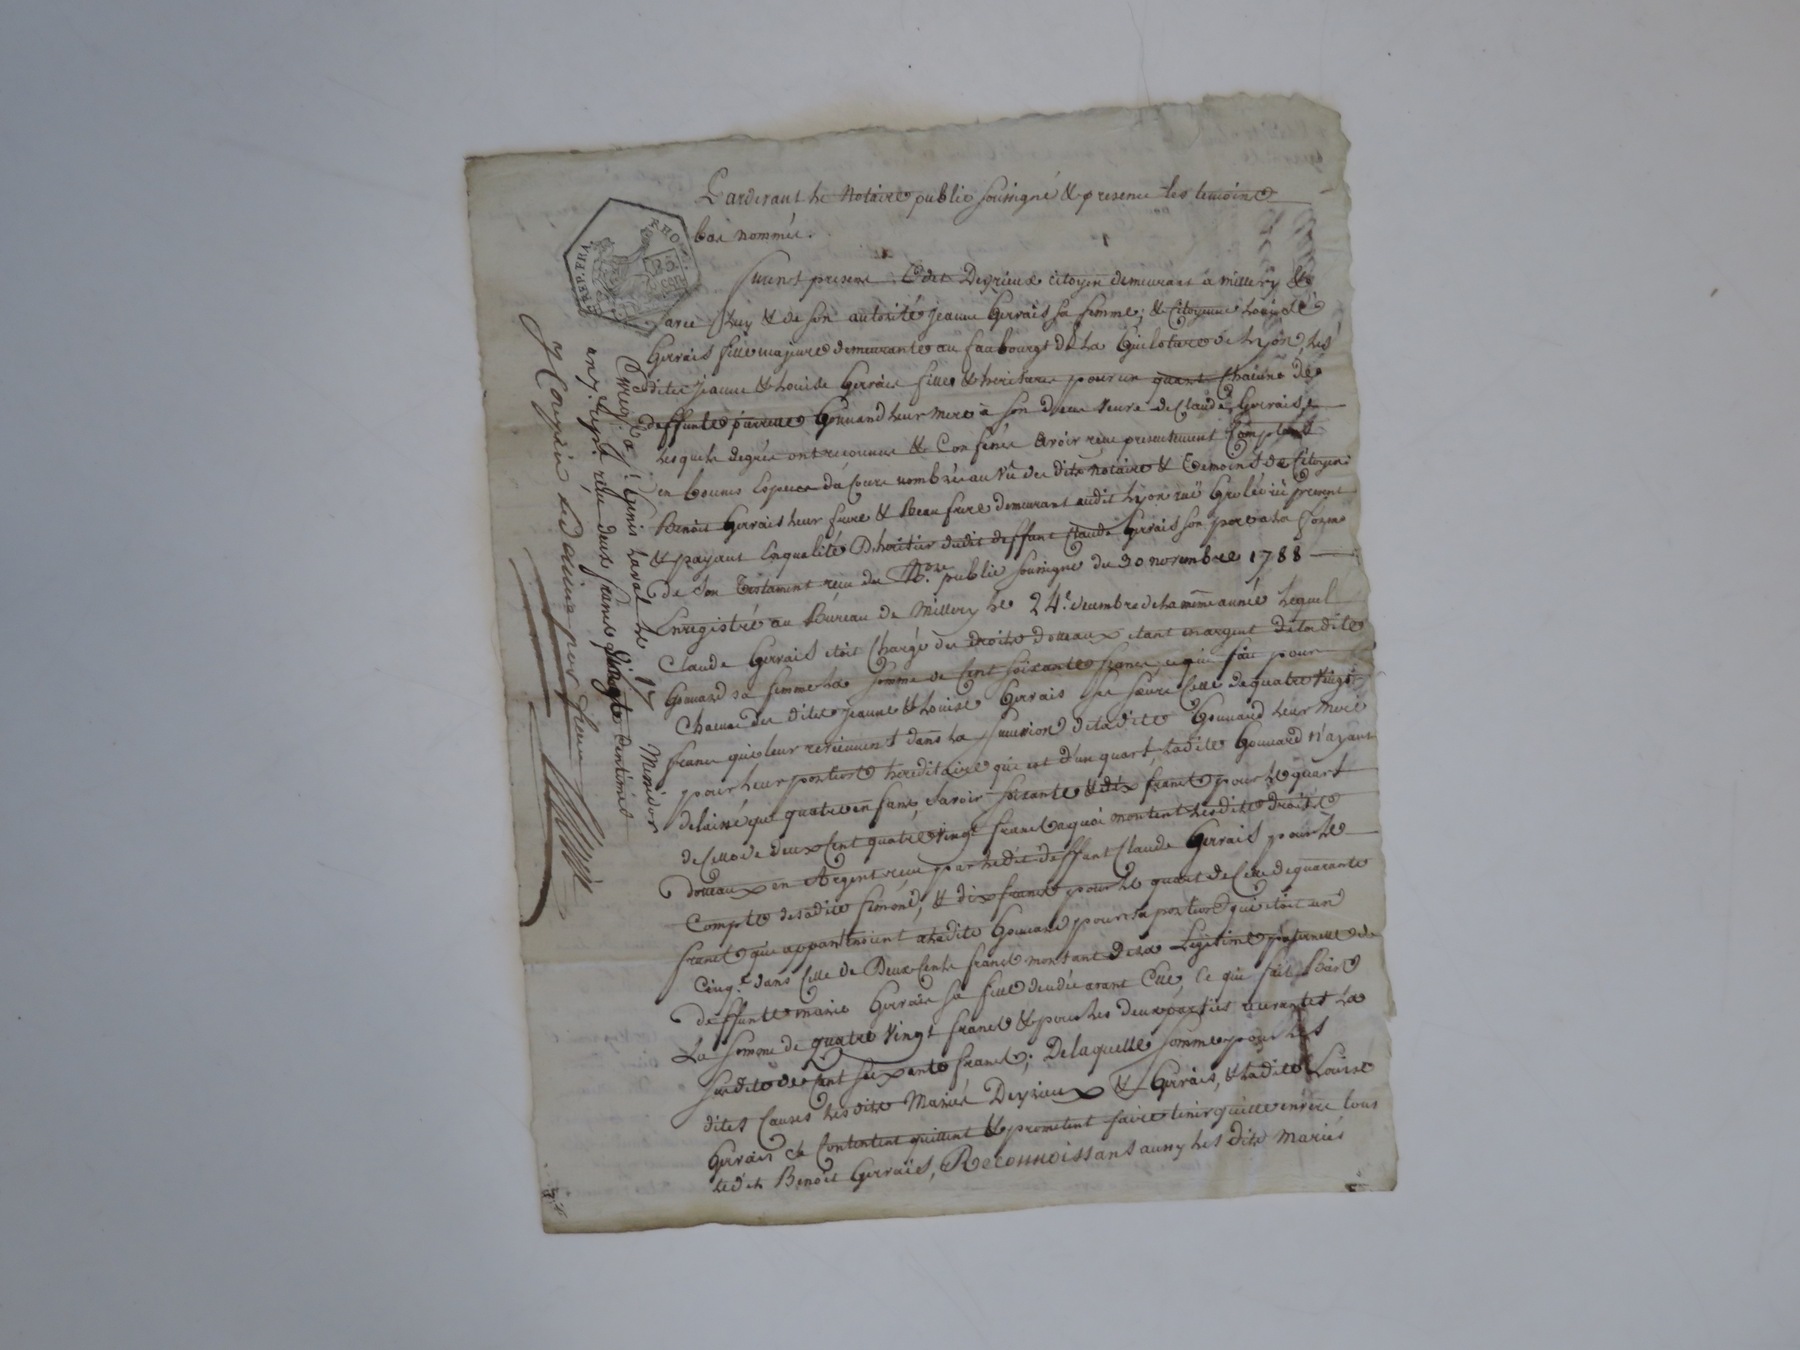 Pardevant le Notaire public soussigné & presence des temoins
bas nommés.
REP. FRA.
RHONE
furent presents Deyrieux citoyen demeurant à Millery &
luy & de son autorité jeanne Gervais sa femme; & Citoyenne Louise
Gervais fille majeure demeurante au faubourgt de La Guilotiere de Lyon, les
dites jeanne & Louise Gervais filles & heritieres pour un quart chacune de
deffunte pierrette Gonnard leur mere à son deces veuve de Claude Gervais
lesquels degrés ont reconnus & Confessés avoir reçu presentement Comptant
en bonnes Especes da Cours nombrées au vû des dits notaire & Temoins de Citoyen
Benoit Gervais leur frere & Beau frere demeurant audit Lyon ruë present
& payant En qualité D'heritier dudit deffunt Claude Gervais son pere a la forme
de son Testament reçu du Nre. public soussigné du 30 novembre 1788
Enregistré au Bureau de Millery le 24e. decembre de la même année Lequel
Claude Gervais etoit Chargé des Droits dotteaux etant en argent de la dite
Gonnard sa femme la somme de Cent soixante francs, ce qui fait pour
Chacune des dites jeanne & Louise Gervais ses sœurs Celle de quatre Vingt
francs qui leur reviennent dans la succession de ladite Gonnard leur mere
pour leur portions hereditaire qui est d'un quart, ladite Gonnard n'ayant
delaissé que quatre enfans, Savoir soixante & dix francs pour le quart
de Celle de deux Cent quatre vingt francs a quoi montent lesdits droits
dotteaux en Argent reçus par ledit deffunt Claude Gervais pour le
Compte de sadite femme, & dix francs pour le quart de Celle de quarante
francs que appartenoient a ladite Gonnard pour sa portion qui etoit un
Cinqe. dans Celle de Deux Cents francs montant de la Legitime paternelle de
deffunte marie Gervais sa fille decedée avant Elle, Ce qui fait
La somme de quatre Vingt francs & pour les deux parties recevantes La
susdite de Cent soixante francs; De laquelle somme pour les
dites Causes les dits Mariés Deyrieux & Gervais, & ladite Louise
Gervais se Contentent quittent & prometent faire tenir quitte envers tous
ledit Benoit Gervais, Reconnoissans aussy les dits Mariés
Enregé. a St. Genis Laval le 17 Messidor
an 7. reçu deux francs